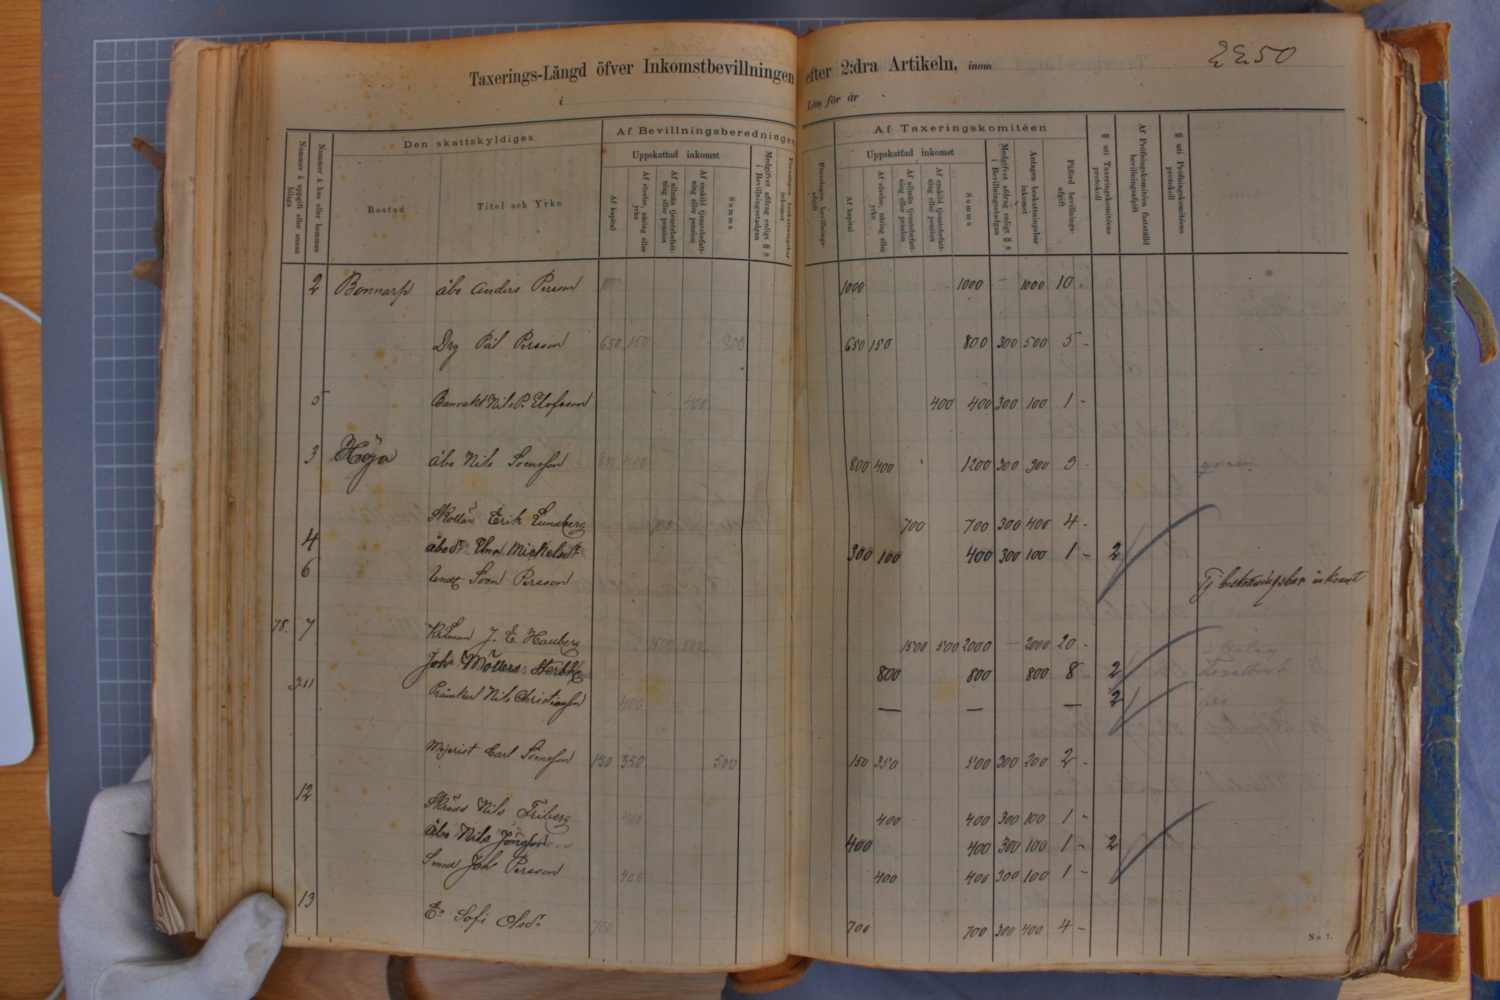 ƐƐ50
Taxerings-Längd öfver Inkomstbevillningen efter 2:dra Artikeln, inom
i Län för år
Nummer å uppgift eller annan bilaga
Nummer å hus eller hemman
Den skattskyldiges
Bostad
Titel och Yrke
Af Bevillningsberedningen
Uppskattad inkomst
Af kapital
Af rörelse, näring eller yrke
Af allmän tjenstebefattning eller pension
Af enskild tjenstebefattning eller pension
Summa
Medgifvet afdrag enligt § 8 i Bevillningsstadgan
Föreslagen beskattningsbar inkomst
Föreslagen bevillningsafgift
Af Taxeringskomitéen
Uppskattad inkomst
Af kapital
Af rörelse, näring eller yrke
Af allmän tjenstebefattning eller pension
Af enskild tjenstebefattning eller pension
Summa
Medgifvet afdrag enligt § 8 i Bevillningsstadgan
Antagen beskattningsbar inkomst
Påförd bevillningsafgift
§ uti Taxeringskomitéens protokoll
Af Pröfningskomitéen fastställd bevillningsafgift
§ uti Pröfningskomitéens protokoll
2 Bonnarp åbo Anders Persson 1000 1000 1000 - 1000 10 -
Drg Pål Persson 650 150 800 650 150 800 300 500 5 -
5 Banvakt Nils P. Elofsson 400 400 400 300 100 1 -
3 Höja åbo Nils Svensson 800 400 800 400 1200 300 900 9 -
Erik Lundberg 700 700 700 300 400 4 -
4 åbod. Una Mickelsd. 300 100 400 300 100 1 - 2
6 Undt Sven Persson Ej beskattningsbar inkomst
78. 7 J. E. Hauberg 1500 500 1500 500 2000 - 2000 20 -
Joh. Möllers Sterbhs 800 800 800 8 2
Nils Christiansson 400 — — — 2
Mejerist Carl Svensson 150 350 500 150 350 500 300 200 2 -
12 Skrädd Nils Friberg 400 400 400 300 100 1 -
åbo Nils Jönsson 400 400 300 100 1 - 2
Smed Joh Persson 400 400 400 300 100 1 -
13 E. Sofi Olsd. 700 700 700 300 400 4 -
N:o 7.